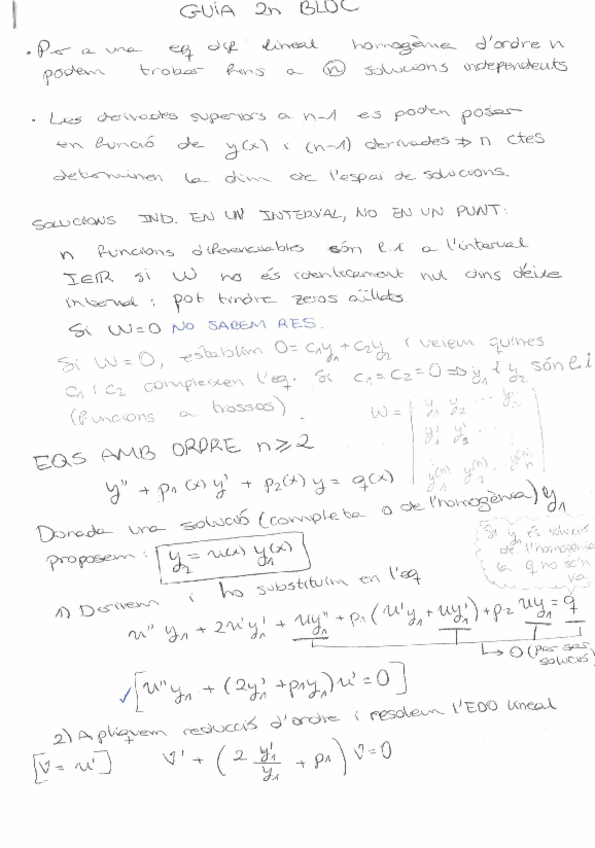 GUIA 2n BLOC
· Per a una eq dif lineal homogènia d'ordre n
podem trobar fins a n solucions independents
· Les derivades superiors a n-1 es poden posar
en funció de y(x) i (n-1) derivades ⇒ n ctes
determinen la dim de l'espai de solucions.
SOLUCIONS IND. EN UN INTERVAL, NO EN UN PUNT:
n funcions diferenciables són l.i a l'interval
I∈ℝ si W no és idènticament nul dins d'eixe
interval: pot tindre zeros aïllats.
Si W=0 NO SABEM RES.
Si W=0, establim 0=c₁y₁+c₂y₂ i veiem quines
c₁ i c₂ compleixen l'eq. Si c₁=c₂=0 ⇒ y₁ i y₂ són l.i
(funcions a trossos).
W = | y₁ y₂ ... yₙ
y₁' y₂' ...
y₁⁽ⁿ⁾ y₂⁽ⁿ⁾ ... yₙ⁽ⁿ⁾ |
EQS AMB ORDRE n≥2
y'' + p₁(x) y' + p₂(x) y = q(x)
Donada una solució (completa o de l'homogènia) y₁
proposem: y₂ = u(x) y₁(x)
Si y₁ és solució
de l'homogènia
la q no se'n
va
1) Derivem i ho substituïm en l'eq
u'' y₁ + 2u'y₁' + uy₁'' + p₁(u'y₁ + uy₁') + p₂ uy₁ = q
→ 0 (per ser
solució)
✓ [u''y₁ + (2y₁' + p₁y₁)u' = 0]
2) Apliquem reducció d'ordre i resolem l'EDO lineal
[v = u'] v' + (2 y₁'/y₁ + p₁) v = 0